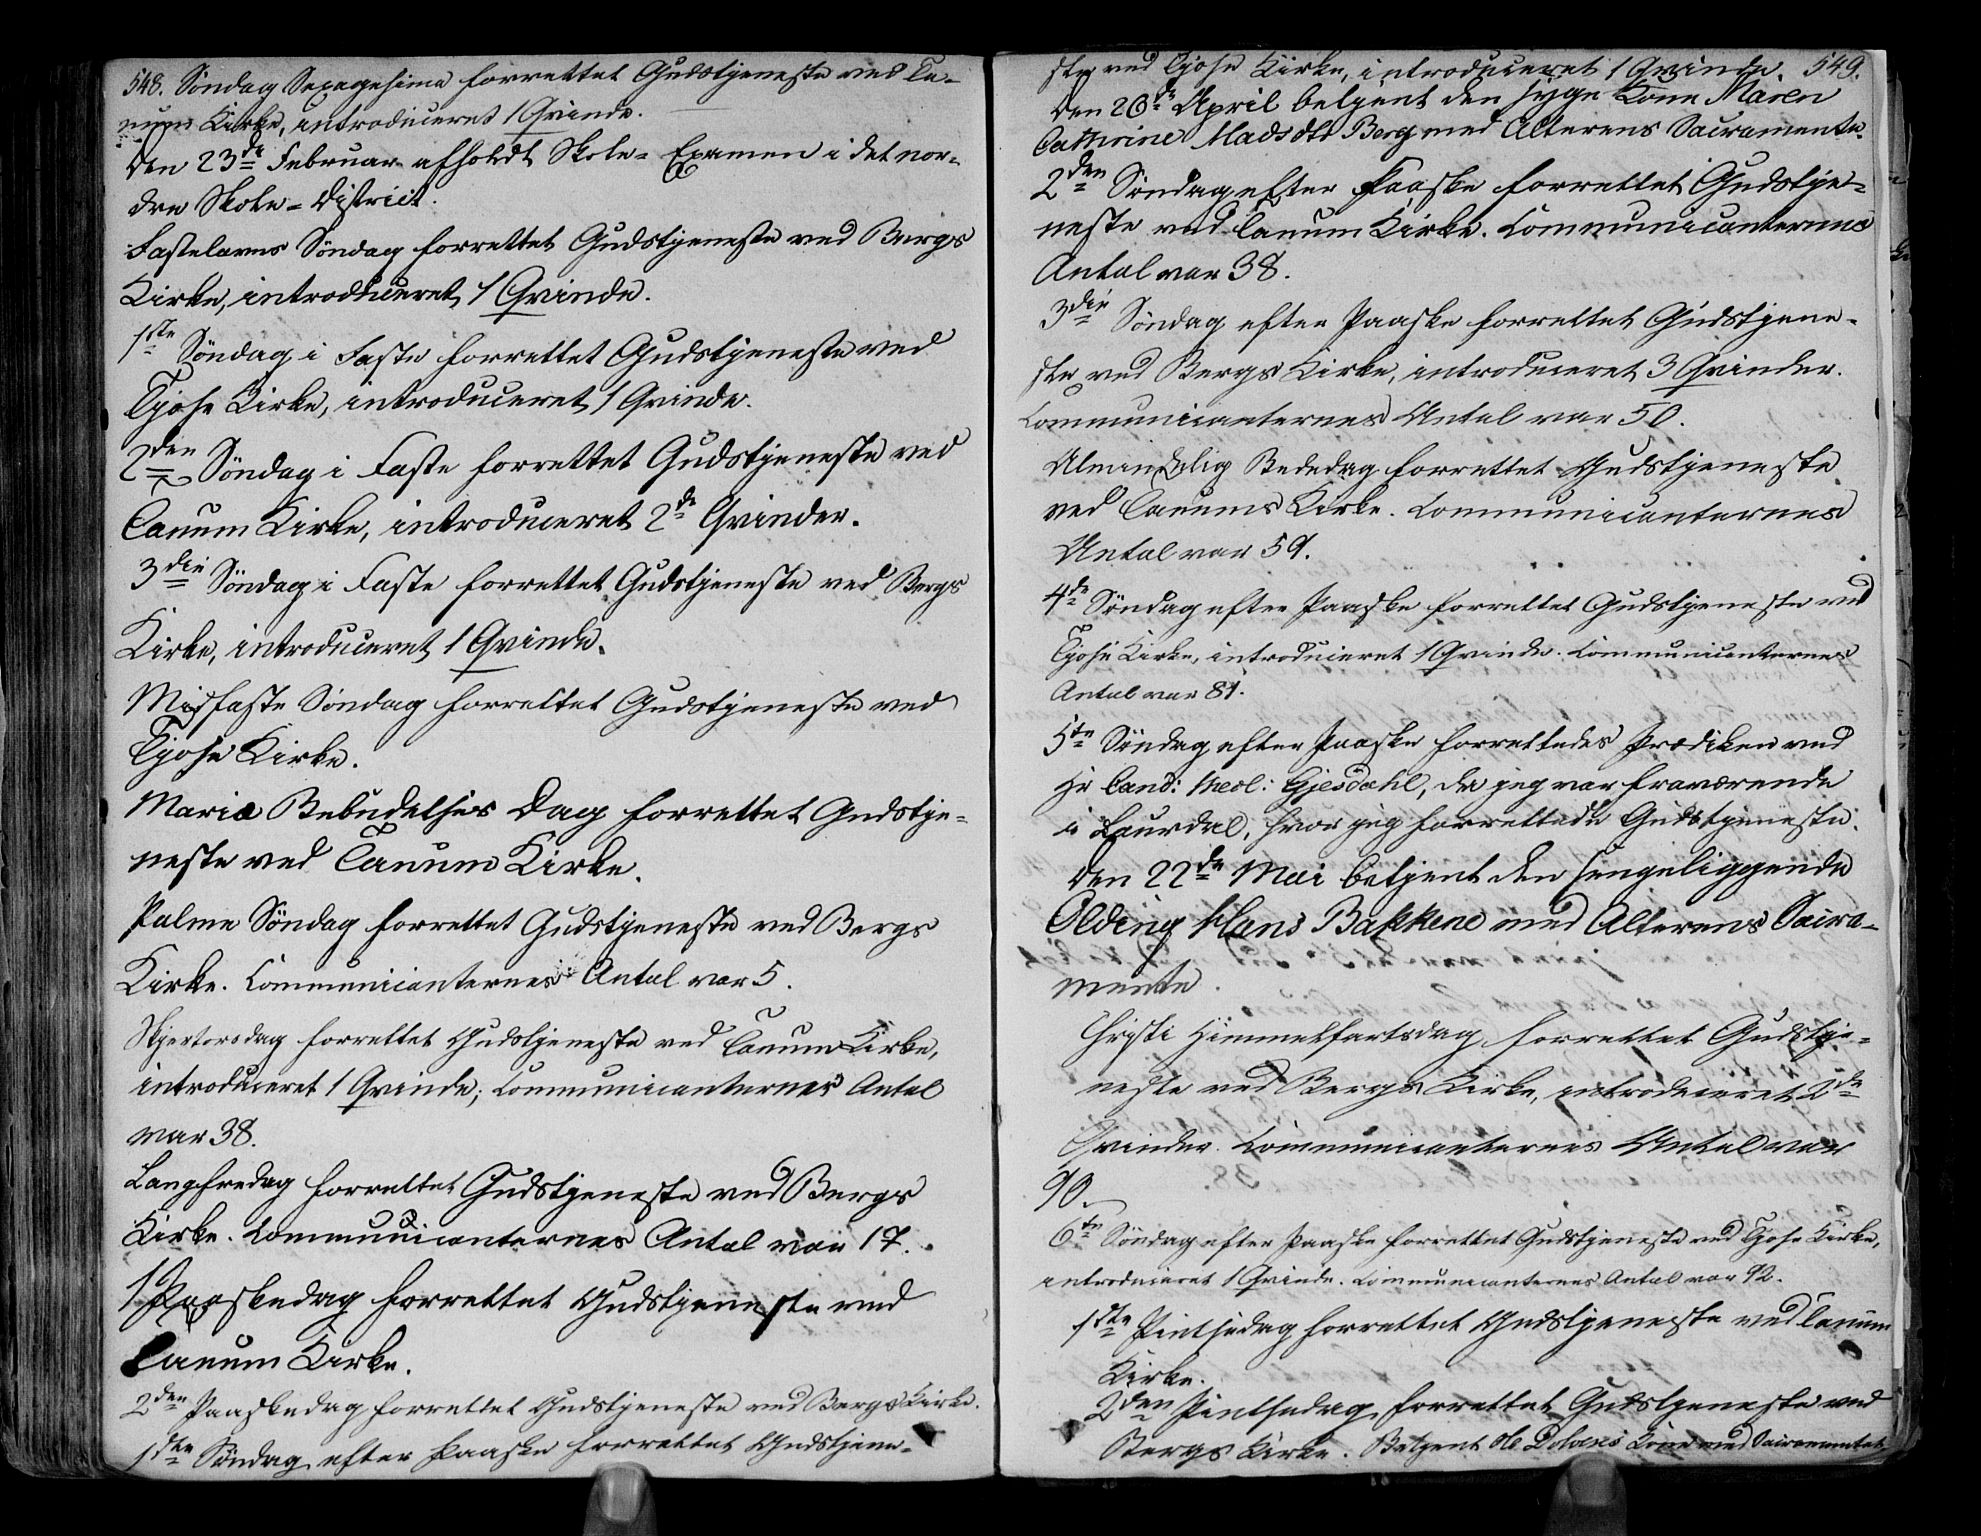 548. Søndag Sexagesima forrettet Gudstjeneste ved Ta-
num Kirke, introduceret 1 Qvinde.
Den 23de Februar afholdt Skole-Examen i det nor-
dre Skole-District.
Fastelavns Søndag forrettet Gudstjeneste ved Bergs
Kirke, introduceret 1 Qvinde.
1ste Søndag i Faste forrettet Gudstjeneste ved
Tjose Kirke, introduceret 1 Qvinde.
2den Søndag i Faste forrettet Gudstjeneste ved
Tanum Kirke, introduceret 2de Qvinder.
3die Søndag i Faste forrettet Gudstjeneste ved Bergs
Kirke, introduceret 1 Qvinde.
Midfaste Søndag forrettet Gudstjeneste ved
Tjose Kirke.
Mariæ Bebudelses Dag forrettet Gudstje-
neste ved Tanum Kirke.
Palme Søndag forrettet Gudstjeneste ved Bergs
Kirke. Communicanternes Antal var 5.
Skjertorsdag forrettet Gudstjeneste ved Tanum Kirke,
introduceret 1 Qvinde; Communicanternes Antal
var 38.
Langfredag forrettet Gudstjeneste ved Bergs
Kirke. Communicanternes Antal var 17.
1 Paaskedag forrettet Gudstjeneste ved
Tanum Kirke.
2den Paaskedag forrettet Gudstjeneste ved Bergs Kirke.
1ste Søndag efter Paaske forrettet Gudstjene-
ste ved Tjose Kirke, introduceret 1 Qvinde. 549.
Den 26de April betjent den syge Kone Maren
Cathrine Madsdtr Berg med Alterens Sacramente.
2den Søndag efter Paaske forrettet Gudstje-
neste ved Tanum Kirke. Communicanternes
Antal var 38.
3die Søndag efter Paaske forrettet Gudstjene-
ste ved Bergs Kirke, introduceret 3 Qvinder.
Communicanternes Antal var 50.
Almindelig Bededag forrettet Gudstjeneste
ved Tanums Kirke. Communicanternes
Antal var 59.
4de Søndag efter Paaske forrettet Gudstjeneste ved
Tjose Kirke, introduceret 1 Qvinde. Communicanternes
Antal var 81.
5te Søndag efter Paaske forrettedes Prædiken ved
Hr Cand: theol: Gjesdahl, da jeg var fraværende
i Laurdal, hvor jeg forrettede Gudstjeneste.
Den 22de Mai betjent den sengeliggende
Olding Hans Bakkene med Alterens Sacra-
mente.
Christi Himmelfartsdag forrettet Gudstje-
neste ved Bergs Kirke, introduceret 2de
Qvinder. Communicanternes Antal var
90.
6te Søndag efter Paaske forrettet Gudstjeneste ved Tjose Kirke,
introduceret 1 Qvinde. Communicanternes Antal var 92.
1ste Pintsedag forrettet Gudstjeneste ved Tanum
Kirke.
2den Pintsedag forrettet Gudstjeneste ved
Bergs Kirke. Betjent Ole Kone med Sacramentet